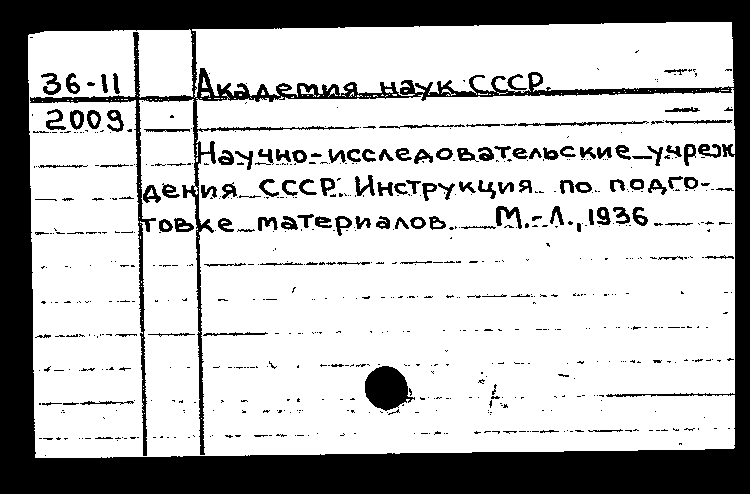 36-11 Академия наук СССР.
2009
Научно-исследовательские учреж
дения СССР. Инструкция по подго-
товке материалов. М.-Л., 1936